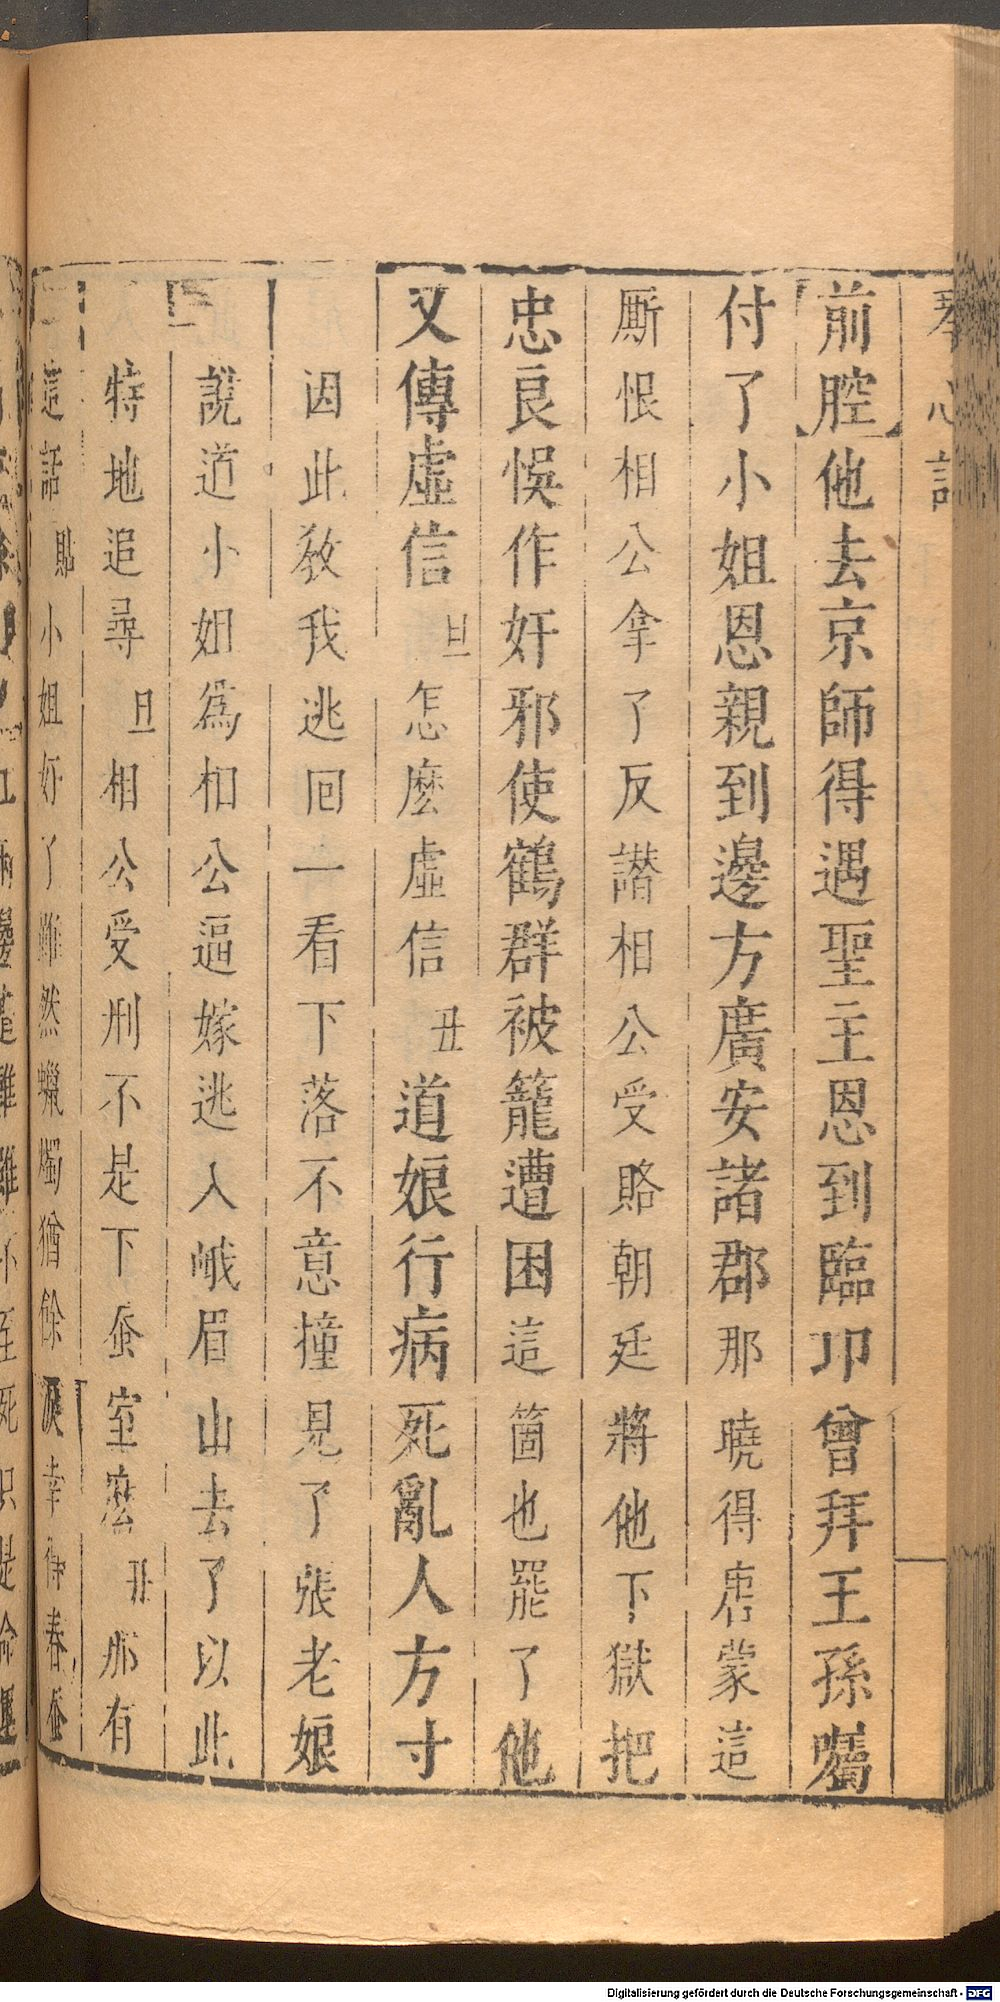 琴心記
前腔他去京師得遇聖主恩到臨卭曾拜王孫囑
付了小姐恩親到邊方廣安諸郡那曉得唐蒙這
厮恨相公拿了反譖相公受賂朝廷將他下獄把
忠良悞作奸邪使鶴群被籠遭困這箇也罷了他
又傳虛信旦怎麽虛信丑道娘行病死亂人方寸
因此教我逃囘一看下落不意撞見了張老娘
說道小姐爲相公逼嫁逃入峨眉山去了以此
特地追尋旦相公受刑不是下蚕室麽丑那有
這話貼小姐好了雖然蠟燭猶餘淚幸得春蚕
Digitalisierung gefördert durch die Deutsche Forschungsgemeinschaft - DFG